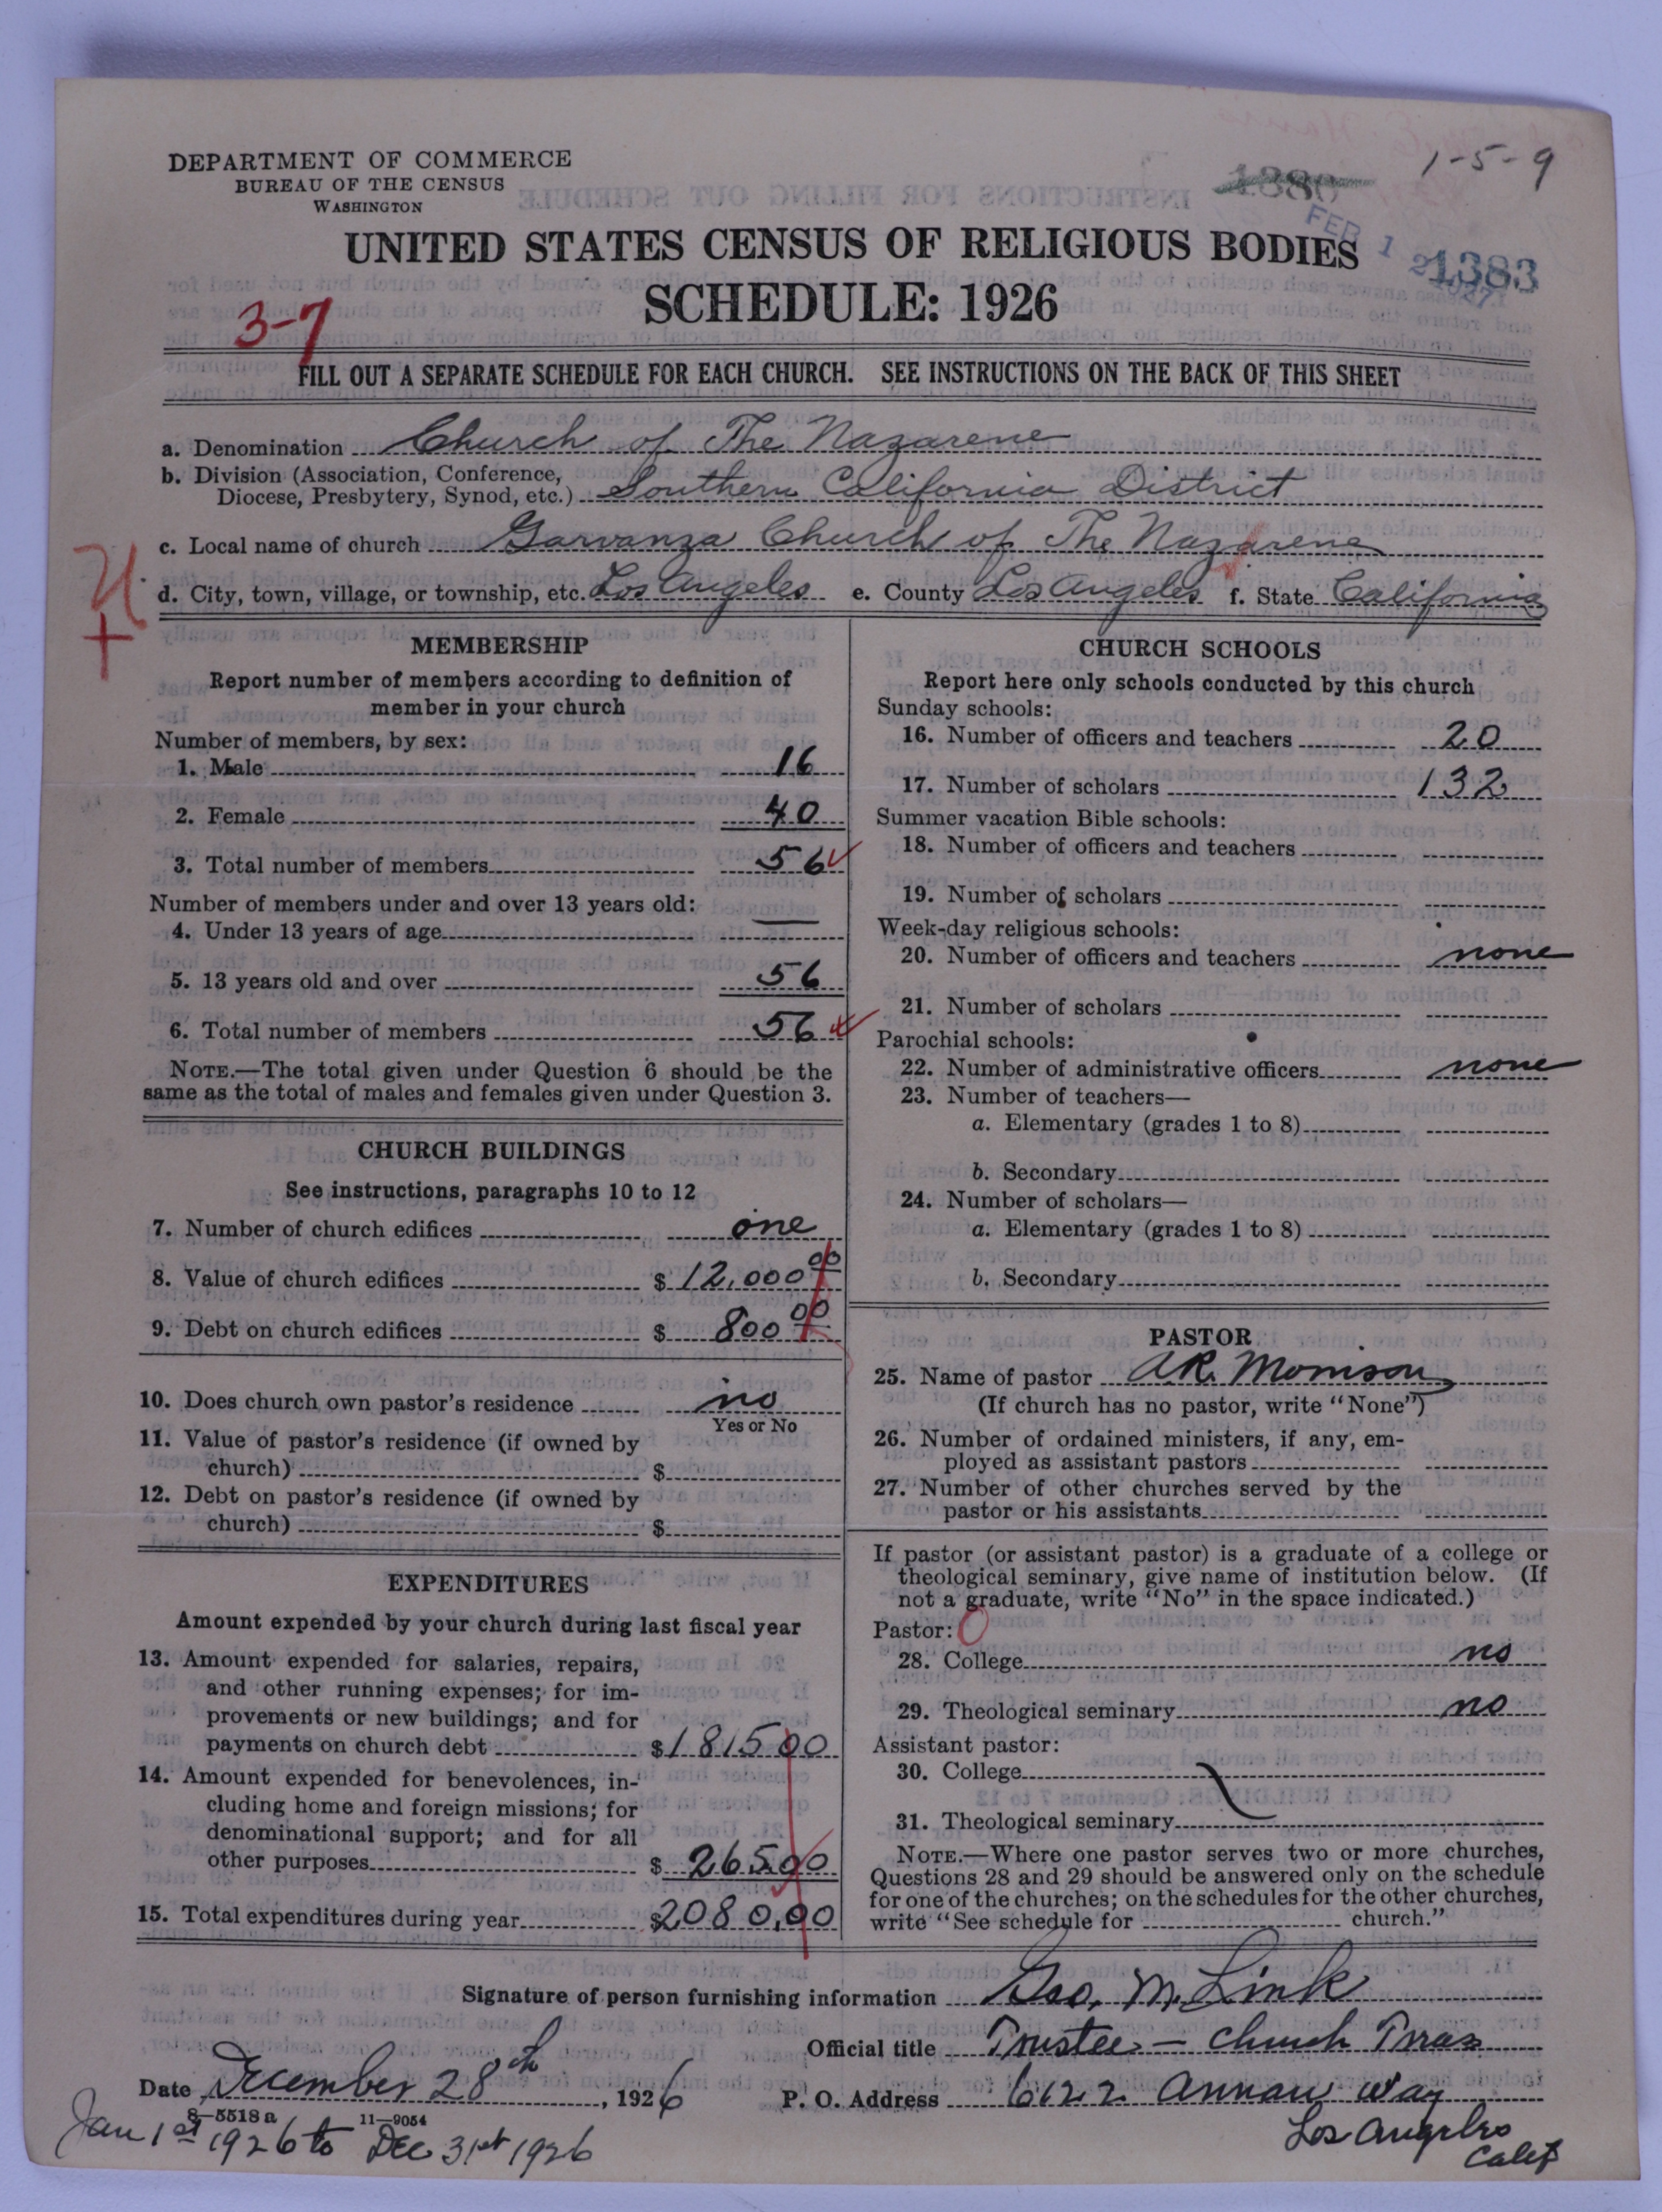 DEPARTMENT OF COMMERCE
BUREAU OF THE CENSUS
WASHINGTON
1-5-9
1380
FEB 1
1383
UNITED STATES CENSUS OF RELIGIOUS BODIES
SCHEDULE: 1926
3-7
FILL OUT A SEPARATE SCHEDULE FOR EACH CHURCH. SEE INSTRUCTIONS ON THE BACK OF THIS SHEET
a. Denomination Church of The Nazarene
b. Division (Association, Conference,
Diocese, Presbytery, Synod, etc.) Southern California District
c. Local name of church Garvanza Church of The Nazarene
d. City, town, village, or township, etc. Los Angeles e. County Los Angeles f. State California
MEMBERSHIP
Report number of members according to definition of
member in your church
Number of members, by sex:
1. Male 16
2. Female 40
3. Total number of members 56
Number of members under and over 13 years old:
4. Under 13 years of age —
5. 13 years old and over 56
6. Total number of members 56
NOTE.—The total given under Question 6 should be the
same as the total of males and females given under Question 3.
CHURCH BUILDINGS
See instructions, paragraphs 10 to 12
7. Number of church edifices one
8. Value of church edifices $ 12,000 00
9. Debt on church edifices $ 800 00
10. Does church own pastor's residence no
Yes or No
11. Value of pastor's residence (if owned by
church) $
12. Debt on pastor's residence (if owned by
church) $
EXPENDITURES
Amount expended by your church during last fiscal year
13. Amount expended for salaries, repairs,
and other running expenses; for im-
provements or new buildings; and for
payments on church debt $1815.00
14. Amount expended for benevolences, in-
cluding home and foreign missions; for
denominational support; and for all
other purposes $ 265.00
15. Total expenditures during year $2080.00
CHURCH SCHOOLS
Report here only schools conducted by this church
Sunday schools:
16. Number of officers and teachers 20
17. Number of scholars 132
Summer vacation Bible schools:
18. Number of officers and teachers
19. Number of scholars
Week-day religious schools:
20. Number of officers and teachers none
21. Number of scholars
Parochial schools:
22. Number of administrative officers none
23. Number of teachers—
a. Elementary (grades 1 to 8)
b. Secondary
24. Number of scholars—
a. Elementary (grades 1 to 8)
b. Secondary
PASTOR
25. Name of pastor A.R. Morrison
(If church has no pastor, write "None")
26. Number of ordained ministers, if any, em-
ployed as assistant pastors
27. Number of other churches served by the
pastor or his assistants
If pastor (or assistant pastor) is a graduate of a college or
theological seminary, give name of institution below. (If
not a graduate, write "No" in the space indicated.)
Pastor: 0
28. College no
29. Theological seminary no
Assistant pastor:
30. College
31. Theological seminary
NOTE.—Where one pastor serves two or more churches,
Questions 28 and 29 should be answered only on the schedule
for one of the churches; on the schedules for the other churches,
write "See schedule for church."
Signature of person furnishing information Geo. M. Link
Official title Trustee — Church Treas
Date December 28th, 1926 P. O. Address 6122 Annan Way
Los Angeles
Calif
8—5518a 11—9054
Jan 1st 1926 to Dec 31st 1926